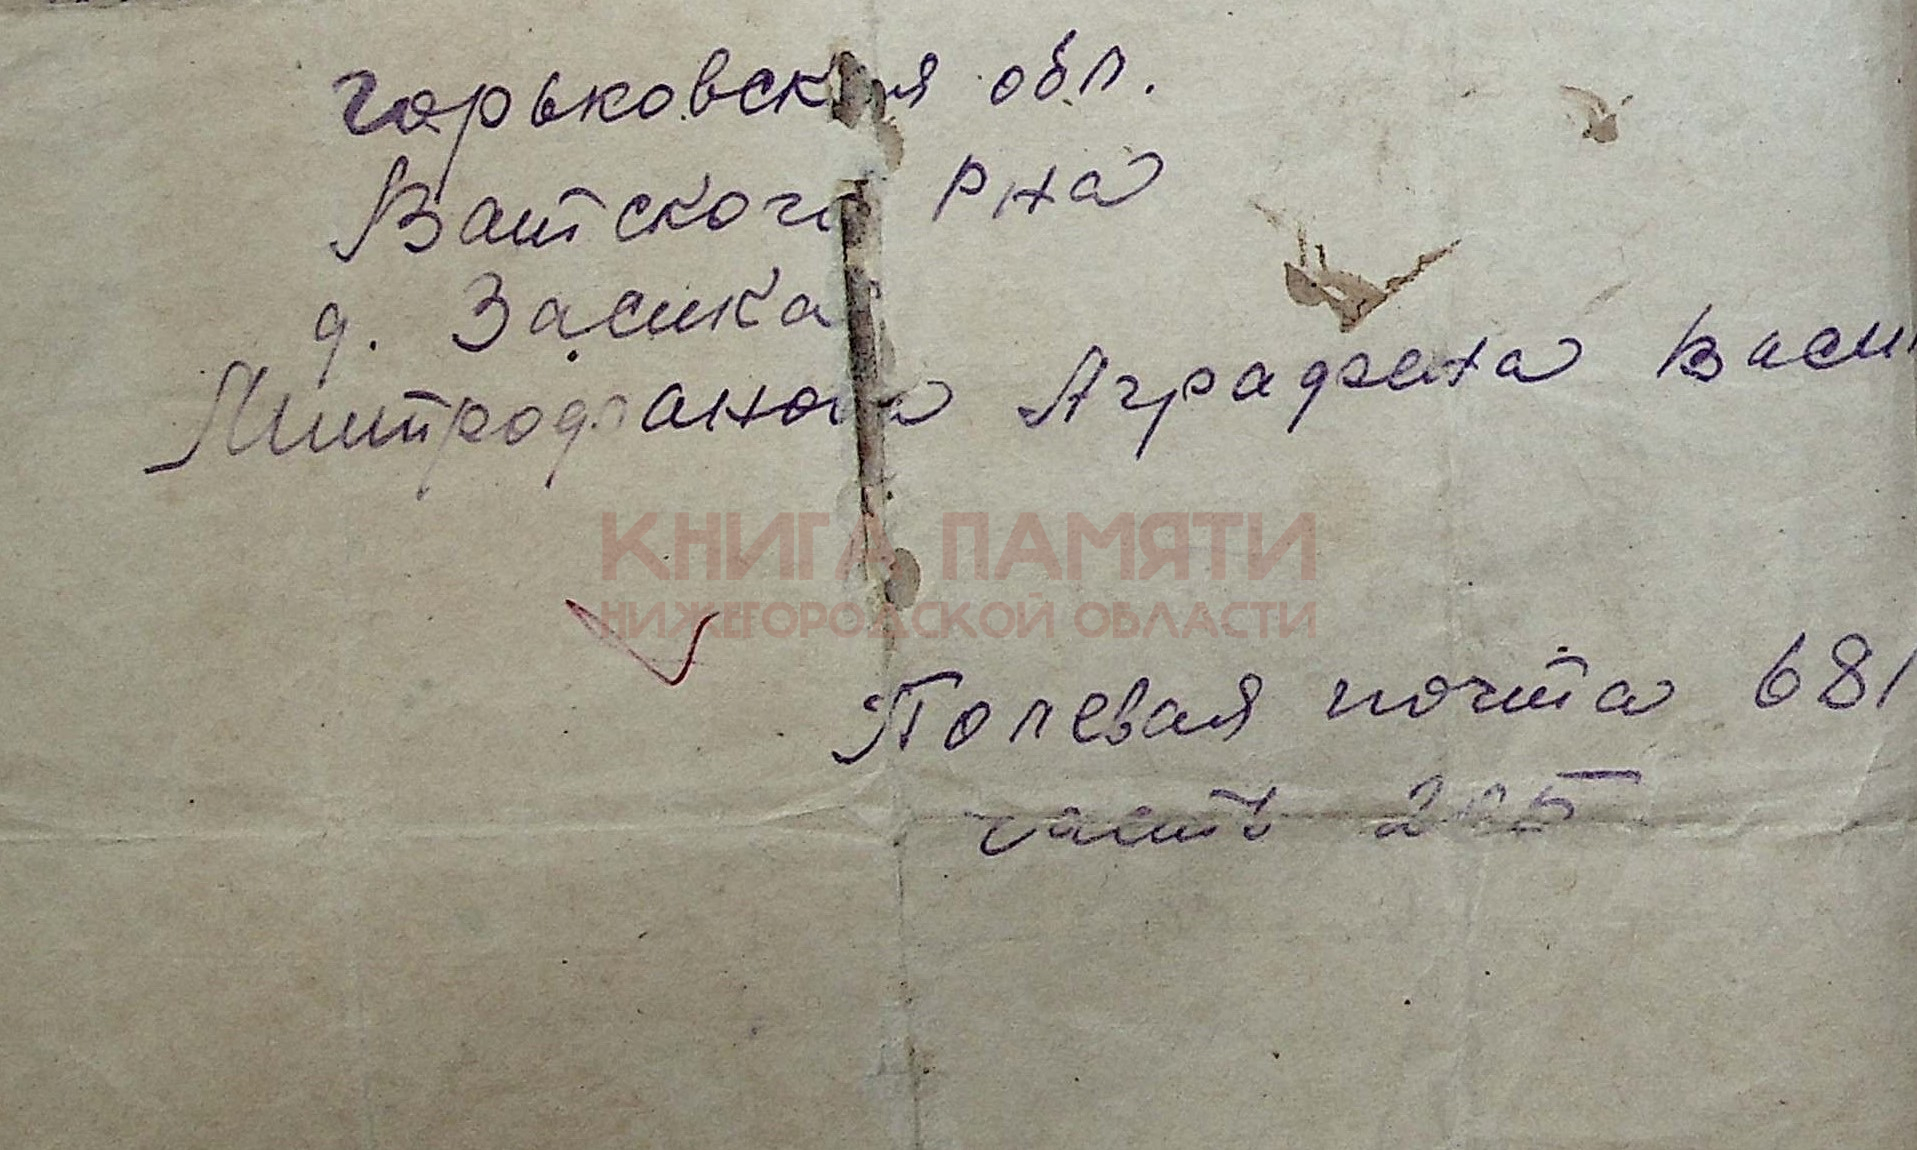 Горьковская обл.
Ватского рна
д. Засика
Митрофанова Аграфена Васи
КНИГА ПАМЯТИ
НИЖЕГОРОДСКОЙ ОБЛАСТИ
Полевая почта 681
часть